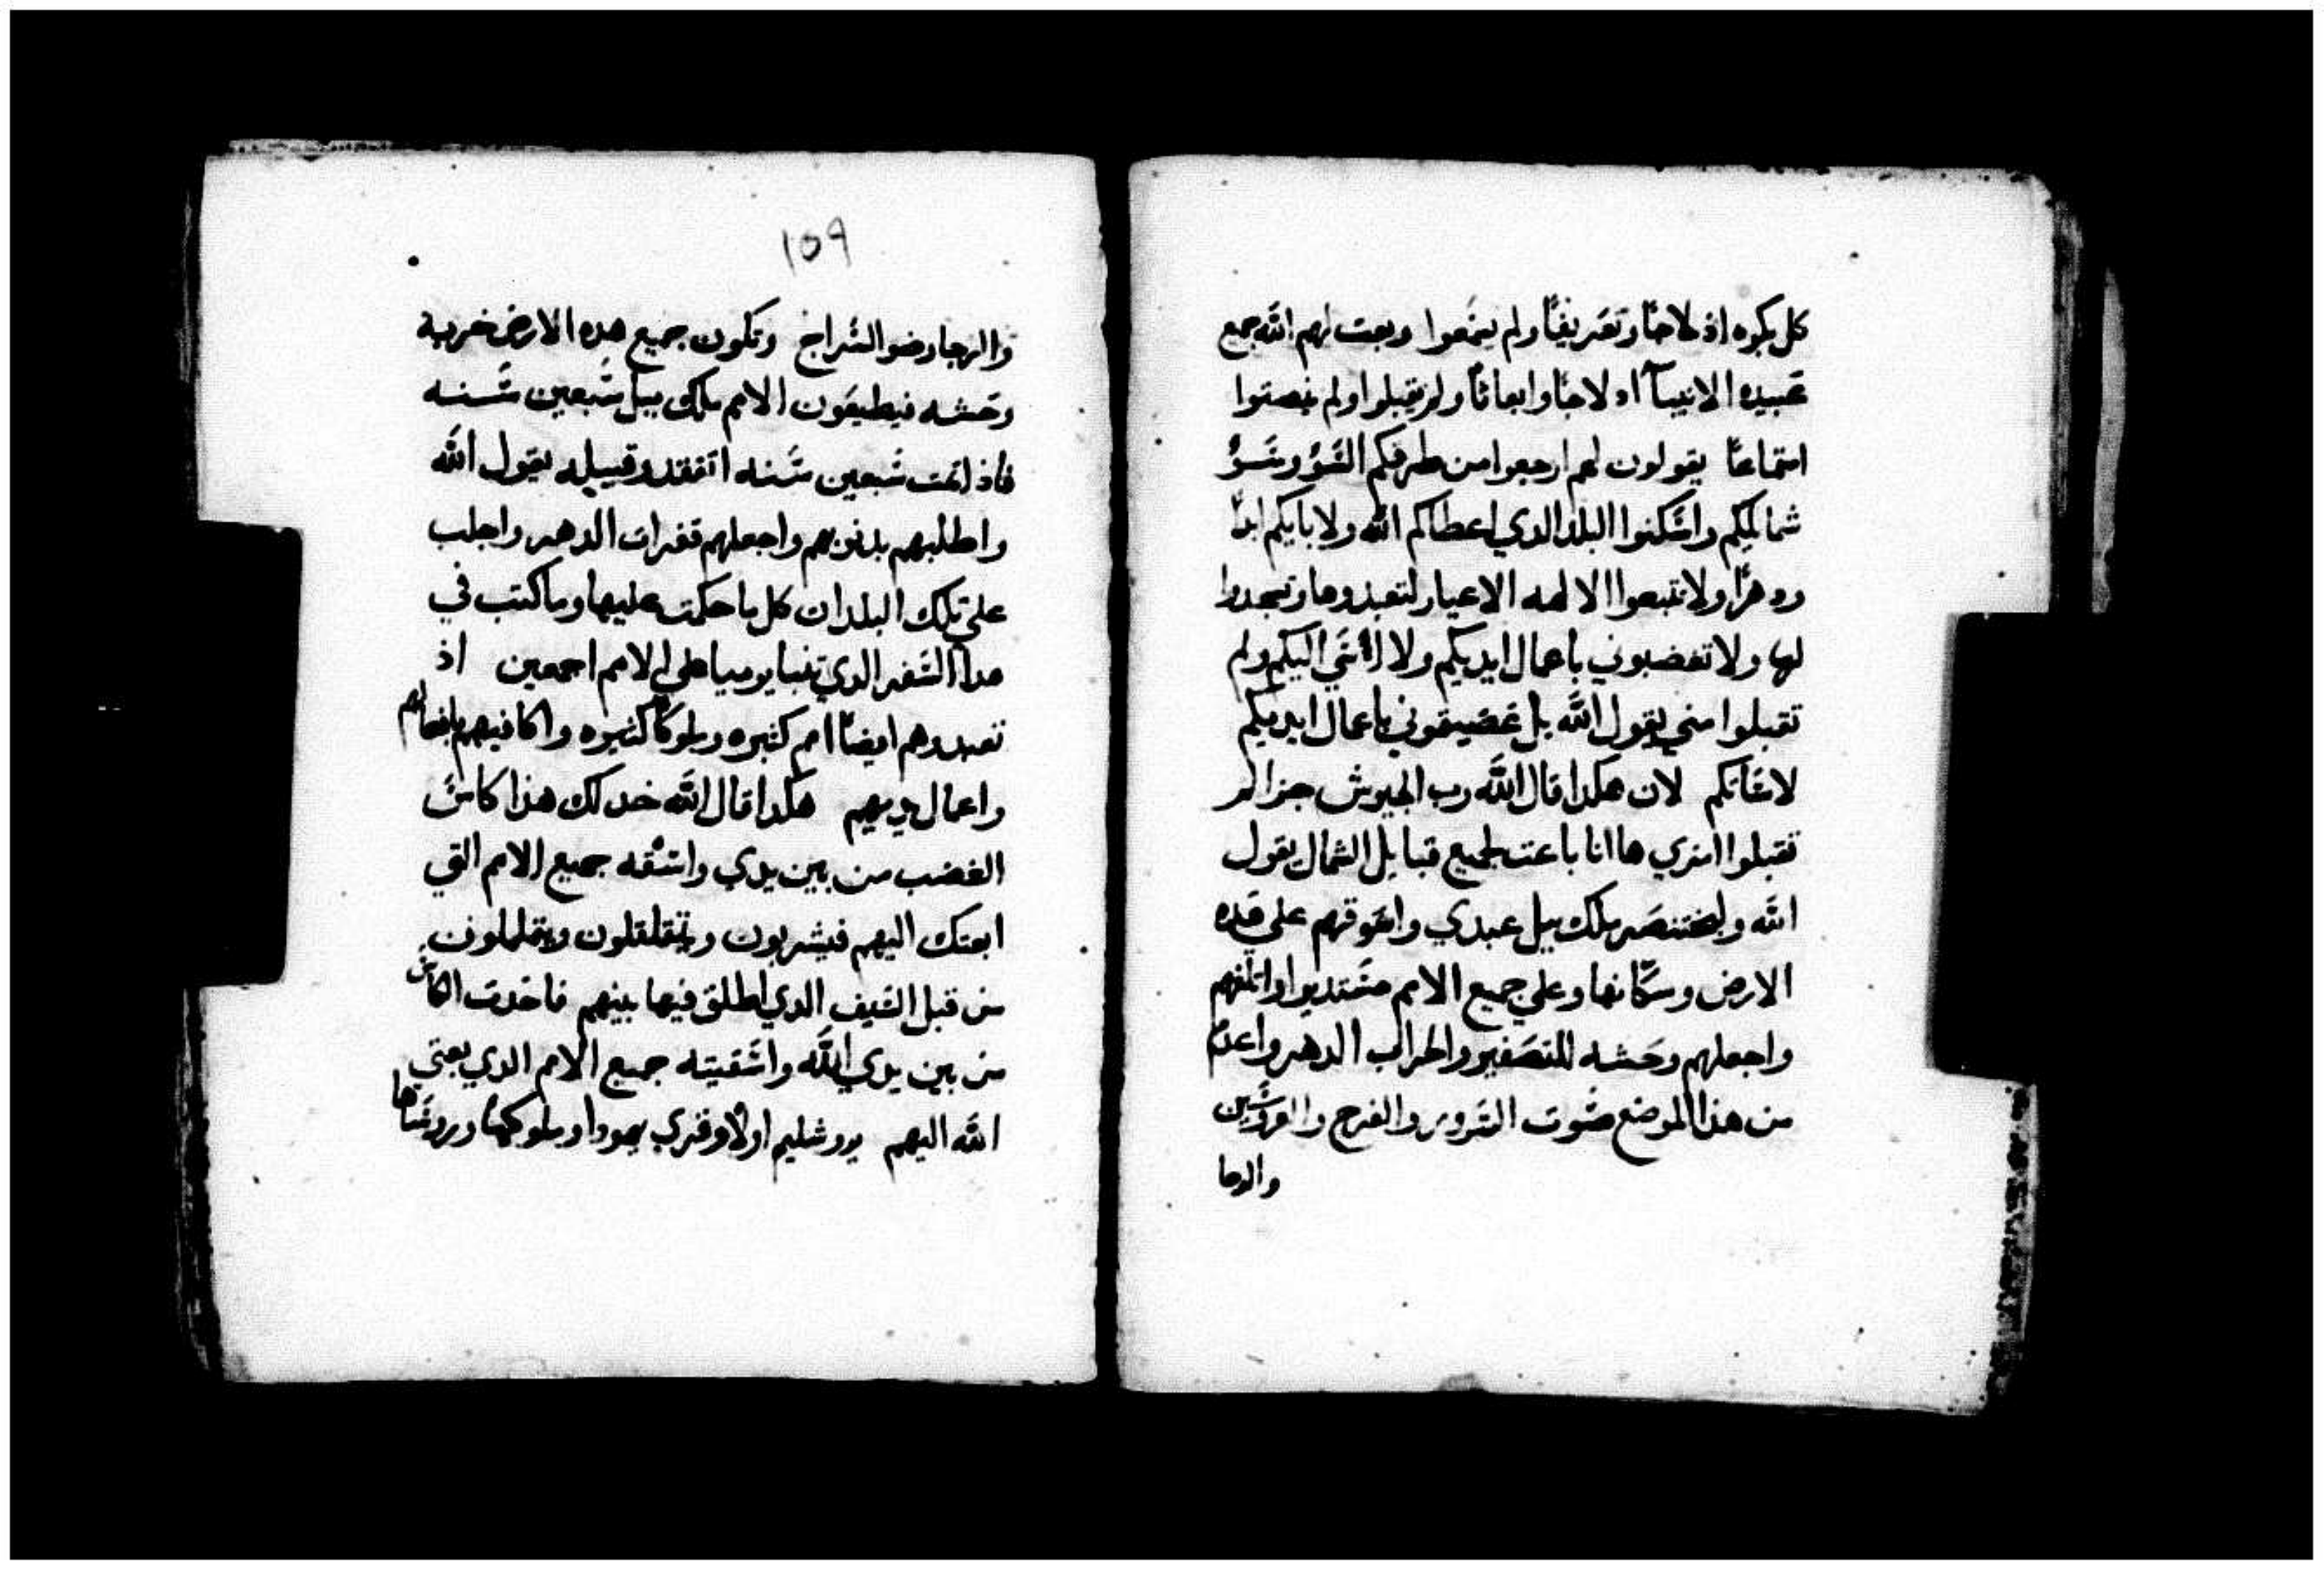 كل بكوه ادلاجًا وتعريفًا ولم يسمعوا وبعت لهم الله جمع
عبيده الانبياآ ادلاجًا وابعاثًا ولم يقبلوا ولم ينصتوا
استماعًا يقولون لهم ارجعوا من طرقكم السَّوُ وسَوُ
شمايلكم واسكنوا البلد الدي اعطاكم الله ولابايكم ابدًا
ودهرًا ولا تتبعوا الالهه الاعيار لتعبدوها وتسجدوا
لها ولا تغضبوني باعمال ايديكم ولا اسَي اليكم ولم
تقبلوا مني يقول الله بل غضيتموني باعمال ايديكم
لاسَاتكم لان هكدا قال الله رب الجيوش جزا لم
تقبلوا امري ها انا باعت لجميع قبايل الشمال يقول
الله ولبختنصر ملك بيل عبدي واسَوقهم علي هده
الارض وسكّانها وعلي جميع الامم مسَتديرا واتلفهم
واجعلهم وحَشه للتصَفير والخراب الدهر واعدم
من هذا الموضع صَوت السَرور والفرح والعروسَين
والرحا
١٥٩
والرحا وضو السَراج وتكون جميع هده الارض خربه
وحَشه فيطيعَون الامم ملك بيل سَبعين سَنه
فاذا تمت سَبعين سَنه اتفقد وقبيله يقول الله
واطلبهم بدنوبهم واجعلهم قفرات الدهر واجلب
علي تلك البلدان كل ما حكمت عليها وما كتب في
هدا السَفر الدي تنبا يرميا علي الامم اجمعين اذ
تعبدوهم ايضًا امم كثيره وملوكًا كثيره واكافيهم بافعالهم
واعمال يديهم هكدا قال الله خد لك هذا كاسَ
الغضب من بين يدي واسَقه جميع الامم التي
ابعتك اليهم فيشربون ويتقلقلون ويتململون
من قبل السَيف الدي اطلق فيما بينهم فاخدت الكاسَ
من بين يدي الله واسَقيته جميع الامم الدي بعتي
الله اليهم يروشليم اولًا وقري يهودا وملوكها وروسَاها